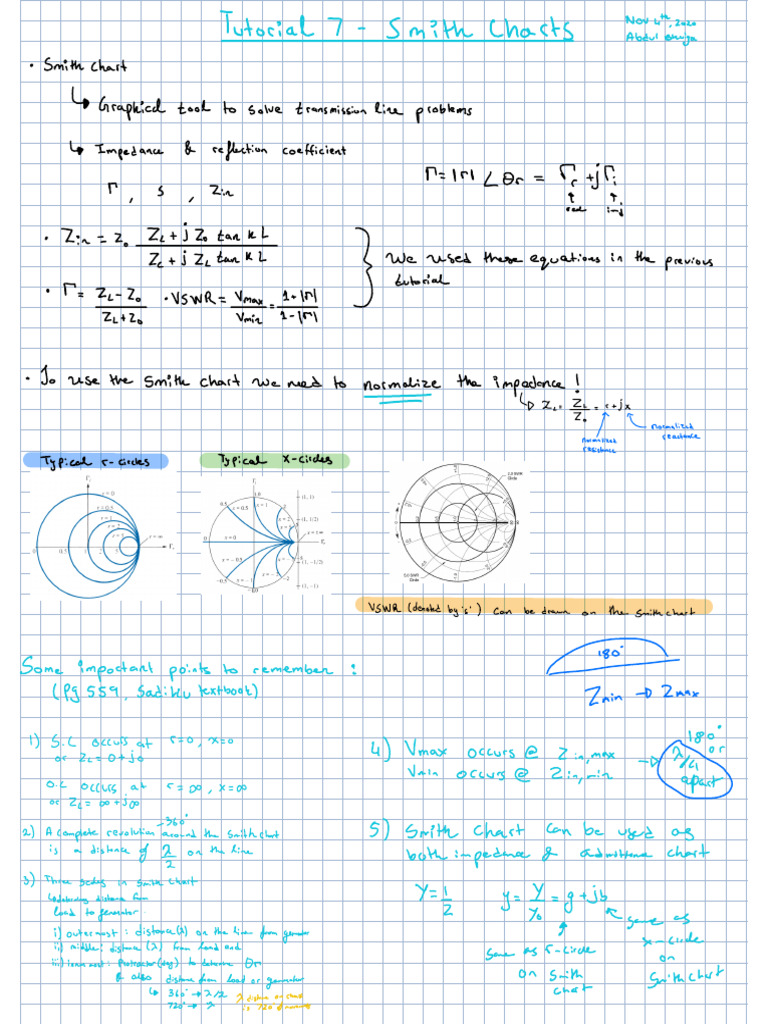 Tutorial 7 - Smith Charts
Nov 4th, 2020
Abdul
• Smith chart
↳ Graphical tool to solve transmission line problems
↳ Impedance & reflection coefficient
Γ , s , Zin
Γ = |Γ| ∠θr = Γr + jΓi
real imj
• Zin = Z₀ (ZL + j Z₀ tan kL) / (ZL + j ZL tan kL)
• Γ = (ZL - Z₀) / (ZL + Z₀) • VSWR = Vmax / Vmin = (1 + |Γ|) / (1 - |Γ|)
We used these equations in the previous
tutorial
• To use the Smith chart we need to normalize the impedance !
↳ ZL = ZL / Z₀ = r + jx
normalized resistance
normalized reactance
Typical r-circles
Typical x-circles
VSWR (denoted by 's') can be drawn on the smith chart
Some important points to remember :
(Pg 559, Sadiku textbook)
180°
Zmin → Zmax
1) S.C occurs at r=0, x=0
or ZL = 0 + j0
O.C occurs at r = ∞, x = ∞
or ZL = ∞ + j∞
2) A complete revolution around the Smith chart
360°
is a distance of λ/2 on the line
3) Three scales in smith chart
distance from
load to generator.
i) outermost: distance(λ) on the line from generator
ii) middle: distance (λ) from load end
iii) innermost: protractor(deg) to determine Θr
& also distance from load or generator
↳ 360° → λ/2
720° → λ
λ distance on chart
is 720° movement
4) Vmax occurs @ Zin,max
Vmin occurs @ Zin,min
→ 180° or λ/4 apart
5) Smith Chart can be used as
both impedance & admittance chart
Y = 1/Z
y = Y / Y₀ = g + jb
same as r-circle
on Smith
chart
same as
x-circle
on
Smith chart